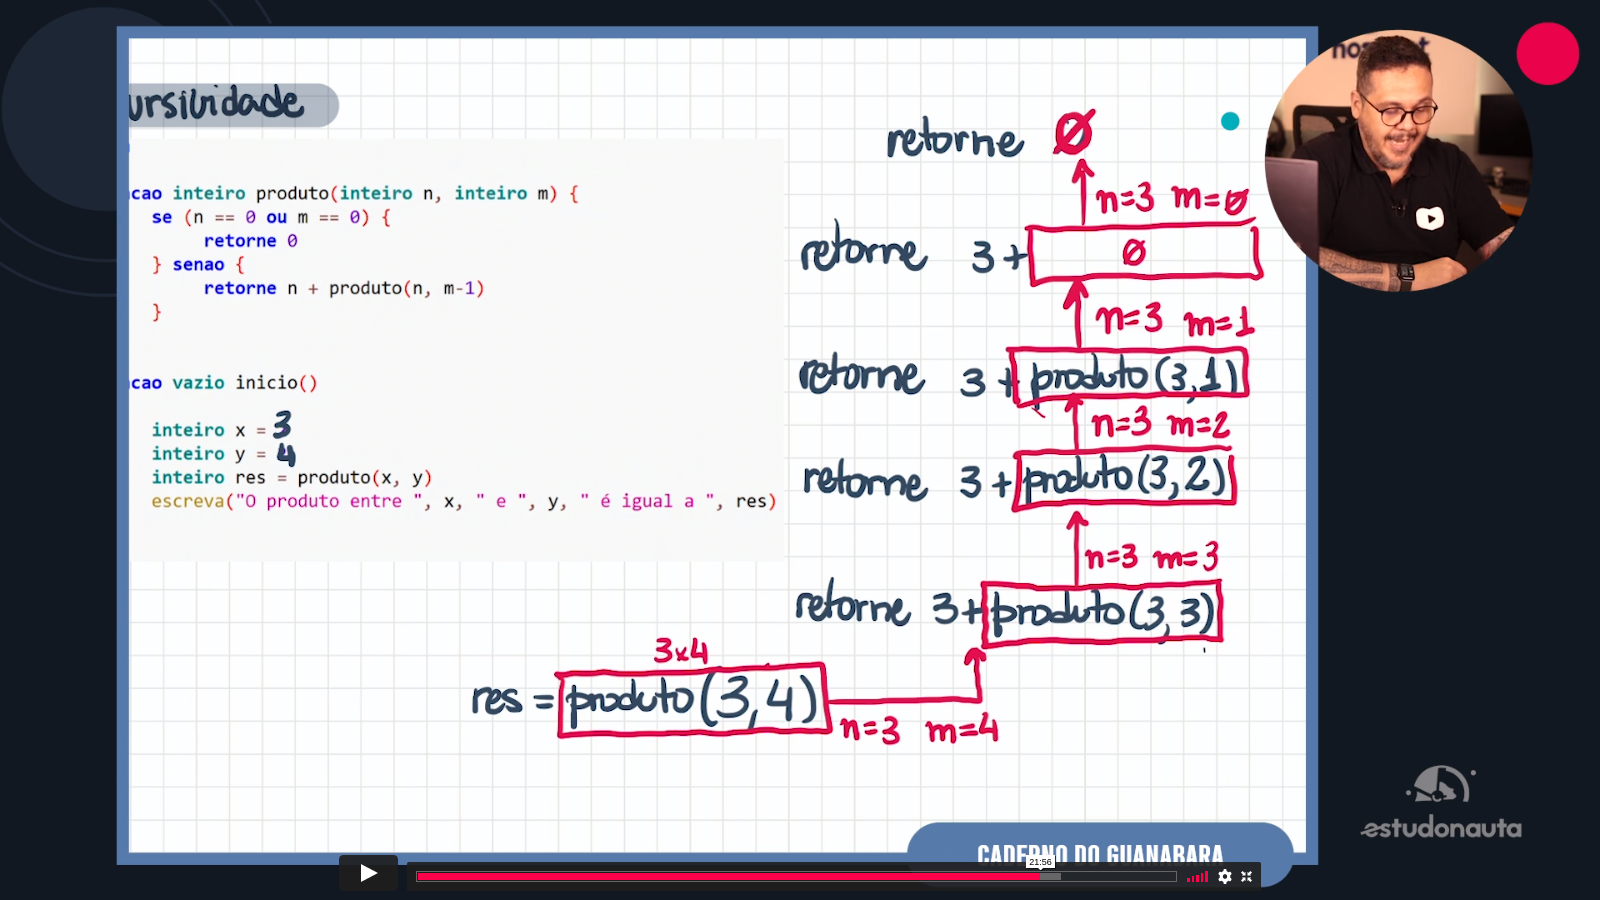 ursividade
cao inteiro produto(inteiro n, inteiro m) {
se (n == 0 ou m == 0) {
retorne 0
} senao {
retorne n + produto(n, m-1)
}
cao vazio inicio()
inteiro x = 3
inteiro y = 4
inteiro res = produto(x, y)
escreva("O produto entre ", x, " e ", y, " é igual a ", res)
retorne 0
n=3 m=0
retorne 3+ 0
n=3 m=1
retorne 3+ produto(3,1)
n=3 m=2
retorne 3+ produto(3,2)
n=3 m=3
retorne 3+ produto(3,3)
3x4
res = produto(3,4)
n=3 m=4
estudonauta
CADERNO DO GUANABARA
21:56